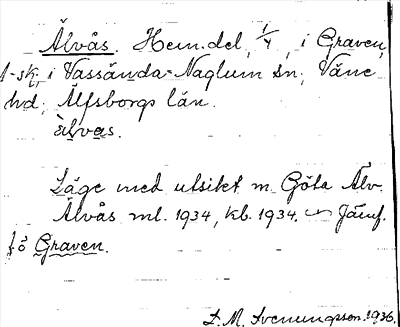 Älvås. Hem.del, 1/4, i Graven,
1-sk, i Vassända-Naglum sn, Väne
hd, Älfsborgs län.
älvas.
Läge med utsikt m. Göta Älv.
Älvås ml. 1934, kb. 1934. Jämf.
Graven.
D. M. Svenungsson. 1936.